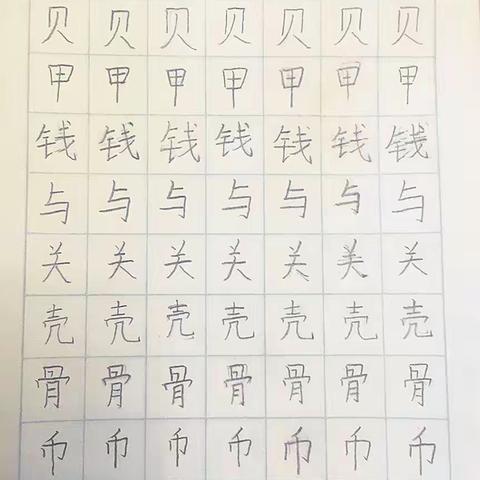 贝贝贝贝贝贝贝
甲甲甲甲甲甲甲
钱钱钱钱钱钱钱
与与与与与与与
关关关关关关关
壳壳壳壳壳壳壳
骨骨骨骨骨骨骨
币币币币币币币